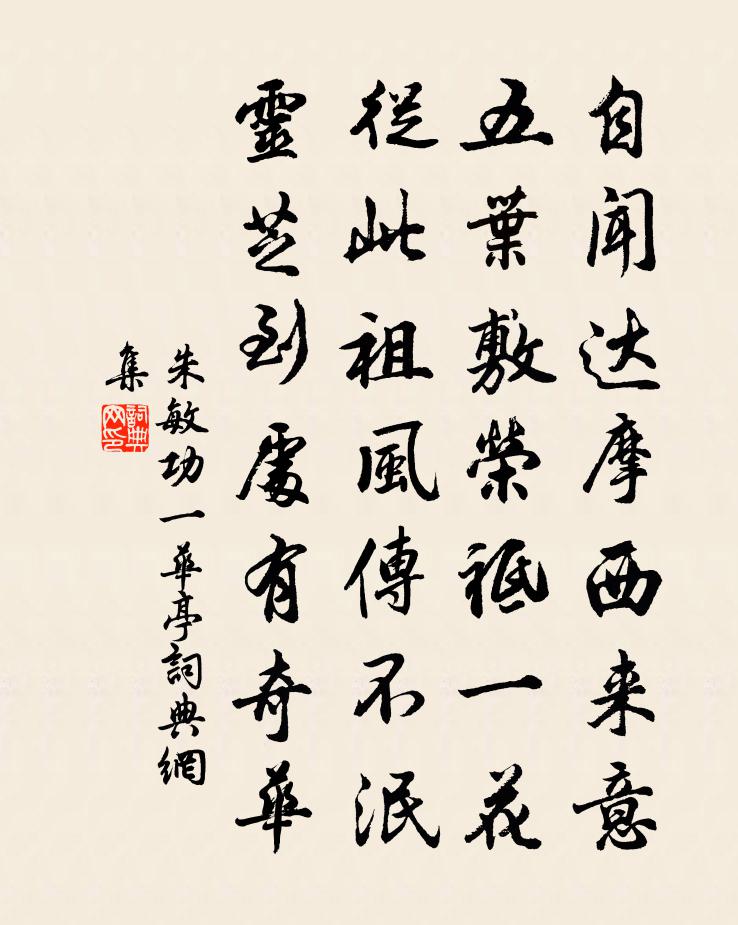 自闻达摩西来意
五葉敷榮祗一花
從此祖風傳不泯
靈芝到處有奇華
朱敏功一華亭詞典網
集
詞典网印